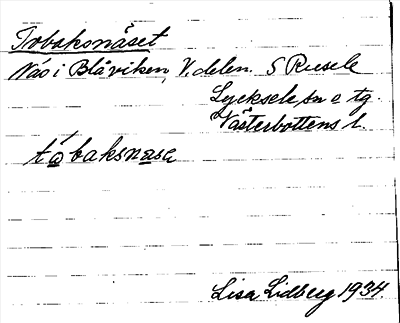 Tobaksnäset
Näs i Blåviken, V. delen. S Rusele
Lycksele sn o tg.
Västerbottens l.
tåbaksnase
Lisa Lidberg 1934.